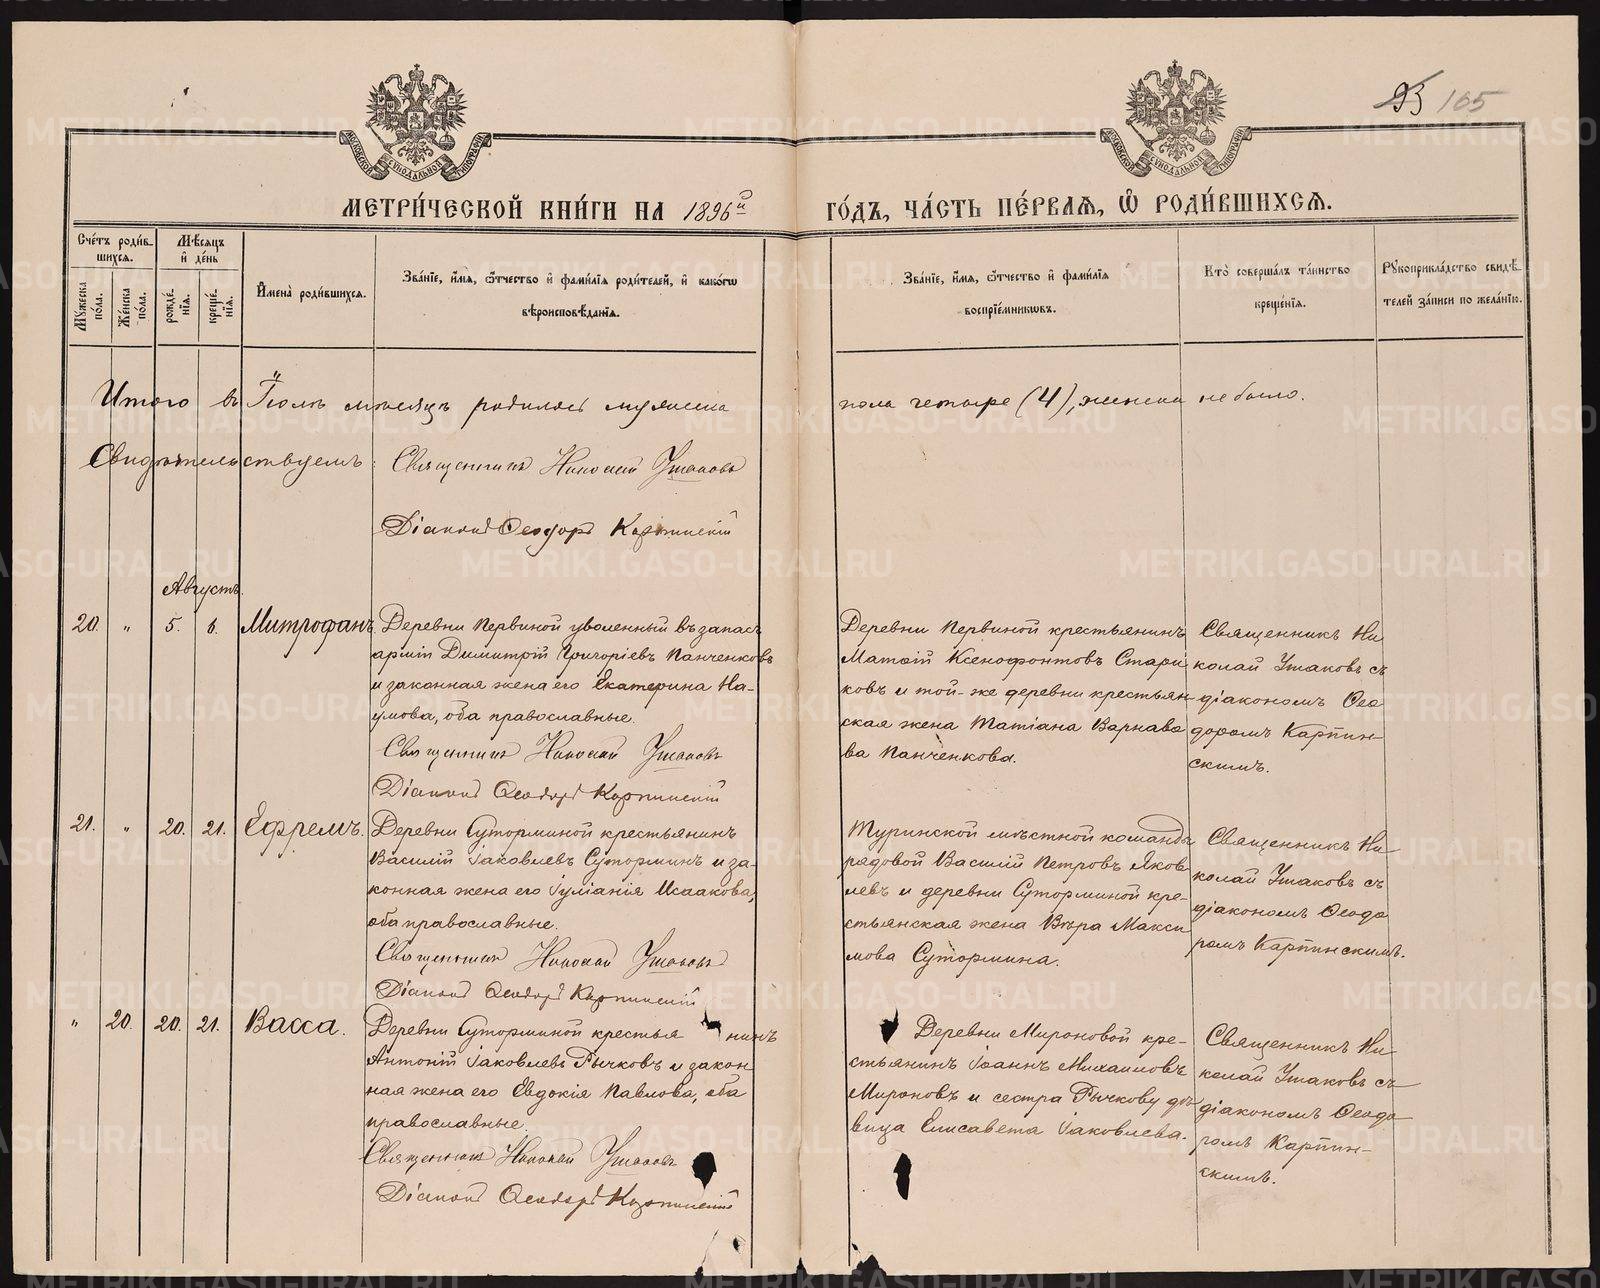 93 165
МОСКОВСКОЙ СѴНОДАЛЬНОЙ ТИПОГРАФІИ
МОСКОВСКОЙ СѴНОДАЛЬНОЙ ТИПОГРАФІИ
МЕТРИ́ЧЕСКОЙ КНИ́ГИ НА 1896й ГО́ДЪ, ЧА́СТЬ ПЕ́РВАѦ, Ѡ҆ РОДИ́ВШИХСѦ.
Сче́тъ роди́в-
шихся.
Мꙋ́жеска по́ла.
Же́нска по́ла.
Мѣ́сяцъ и҆ де́нь
рожде́нїя.
креще́нїя.
И҆мена̀ роди́вшихся.
Зва́нїе, и҆́мя, ѻ҆́тчество и҆ фами́лїя роди́телей, и҆ како́гѡ
вѣроисповѣ́данїя.
Зва́нїе, и҆́мя, ѻ҆́тчество и҆ фами́лїя
воспрїе́мникѡвъ.
Кто̀ соверша́лъ та́инство
креще́нїя.
Рꙋкоприкла́дство свидѣ́-
телей за́писи по жела́нїю.
Итого въ Іюлѣ мѣсяцѣ родилось мужеска пола четыре (4), женска не было.
Свидѣтельствуемъ: Священникъ Николай Ушаковъ
Діаконъ Ѳеодоръ Карпинскій
Августъ.
20. „ 5. 6. Митрофанъ.
Деревни Первиной уволенный въ запасъ
арміи Димитрій Григоріевъ Панченковъ
и законная жена его Екатерина На-
умова, оба православные.
Священникъ Николай Ушаковъ
Діаконъ Ѳеодоръ Карпинскій
Деревни Первиной крестьянинъ
Матѳій Ксенофонтовъ Стари
ковъ и той-же деревни крестьян
ская жена Татіана Варнаво
ва Панченкова.
Священникъ Ни
колай Ушаковъ съ
діакономъ Ѳео
доромъ Карпин-
скимъ.
21. „ 20. 21. Ефремъ.
Деревни Суторминой крестьянинъ
Василій Іаковлевъ Суторминъ и за-
конная жена его Іуліанія Исаакова,
оба православные.
Священникъ Николай Ушаковъ
Діаконъ Ѳеодоръ Карпинскій
Туринской мѣстной команды
рядовой Василій Петровъ Яков
левъ и деревни Суторминой кре-
стьянская жена Вѣра Макси
мова Сутормина.
Священникъ Ни-
колай Ушаковъ съ
діакономъ Ѳеодо
ромъ Карпинскимъ.
„ 20. 20. 21. Васса.
Деревни Суторминой крестья нинъ
Антоній Іаковлевъ Рычковъ и закон
ная жена его Евдокія Павлова, оба
православные.
Священникъ Николай Ушаковъ
Діаконъ Ѳеодоръ Карпинскій
Деревни Мироновой кре-
стьянинъ Іоаннъ Михаиловъ
Мироновъ и сестра Рычкову дѣ
вица Елисавета Іаковлева.
Священникъ Ни-
колай Ушаковъ съ
діакономъ Ѳеодо
ромъ Карпин-
скимъ.
METRIKI.GASO-URAL.RU